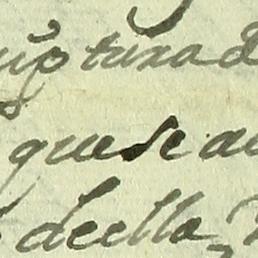 uptura d
que se au
de ella